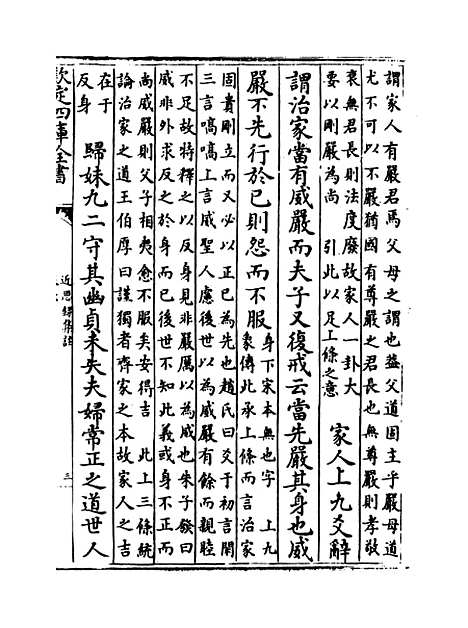 謂家人有嚴君焉父母之謂也蓋父道固主乎嚴母道
尤不可以不嚴猶國有尊嚴之君長也無尊嚴則孝敬
衰無君長則法度廢故家人一卦大
要以剛嚴為尚 引此以足上條之意
家人上九爻辭
謂治家當有威嚴而夫子又復戒云當先嚴其身也威
嚴不先行於已則怨而不服
身下宋本無也字 上九
象傳此承上條而言治家
固貴剛立而又必以正已為先也趙氏曰爻于初言閑
三言嗃嗃上言威聖人慮後世以為威嚴有餘而親睦
不足故特釋之以反身見非嚴厲以為威也朱子發曰
威非外求反之於身而已後世不知此義或身不正而
尚威嚴則父子相夷愈不服矣安得吉 此上三條統
論治家之道王伯厚曰謹獨者齊家之本故家人之吉
在于
反身
歸妹九二守其幽貞未失夫婦常正之道世人
欽定四庫全書
近思録集註
三